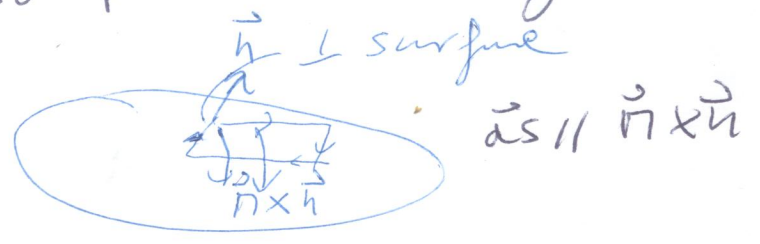 n⃗ ⊥ surface
d⃗s // n⃗ × h⃗
n⃗ × h⃗